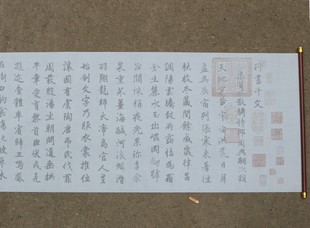 行書千文
散騎侍郎周興嗣次韻
天地玄黃宇宙洪荒日月
盈昃辰宿列張寒來暑往
秋收冬藏閏餘成歲律呂
調陽雲騰致雨露結為霜
金生麗水玉出崑岡劍號
巨闕珠稱夜光果珍李柰
菜重芥薑海鹹河淡鱗潛
羽翔龍師火帝鳥官人皇
始制文字乃服衣裳推位
讓國有虞陶唐弔民伐罪
周發殷湯坐朝問道垂拱
平章愛育黎首臣伏戎羌
遐邇壹體率賓歸王鳴鳳